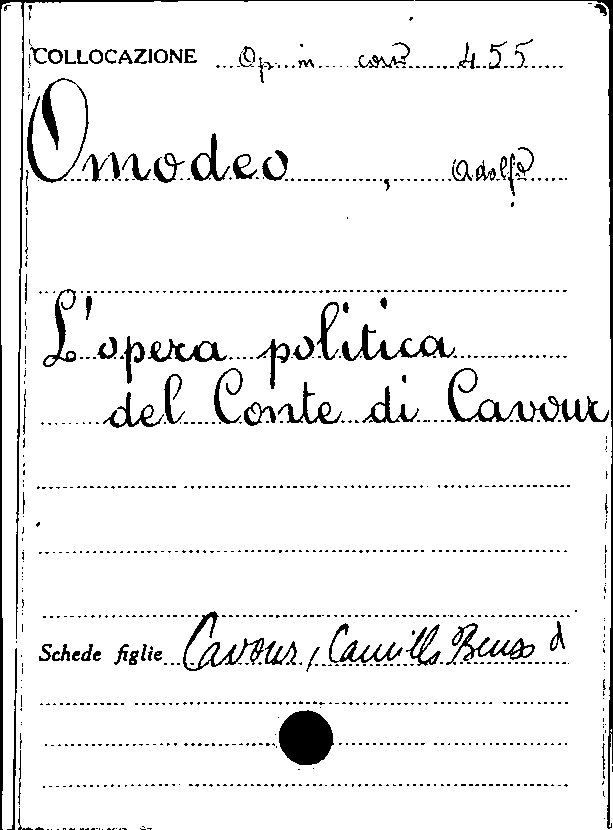 COLLOCAZIONE Op. in corso 455
Omodeo, Adolfo
L'opera politica
del Conte di Cavour
Schede figlie Cavour, Camillo Benso d